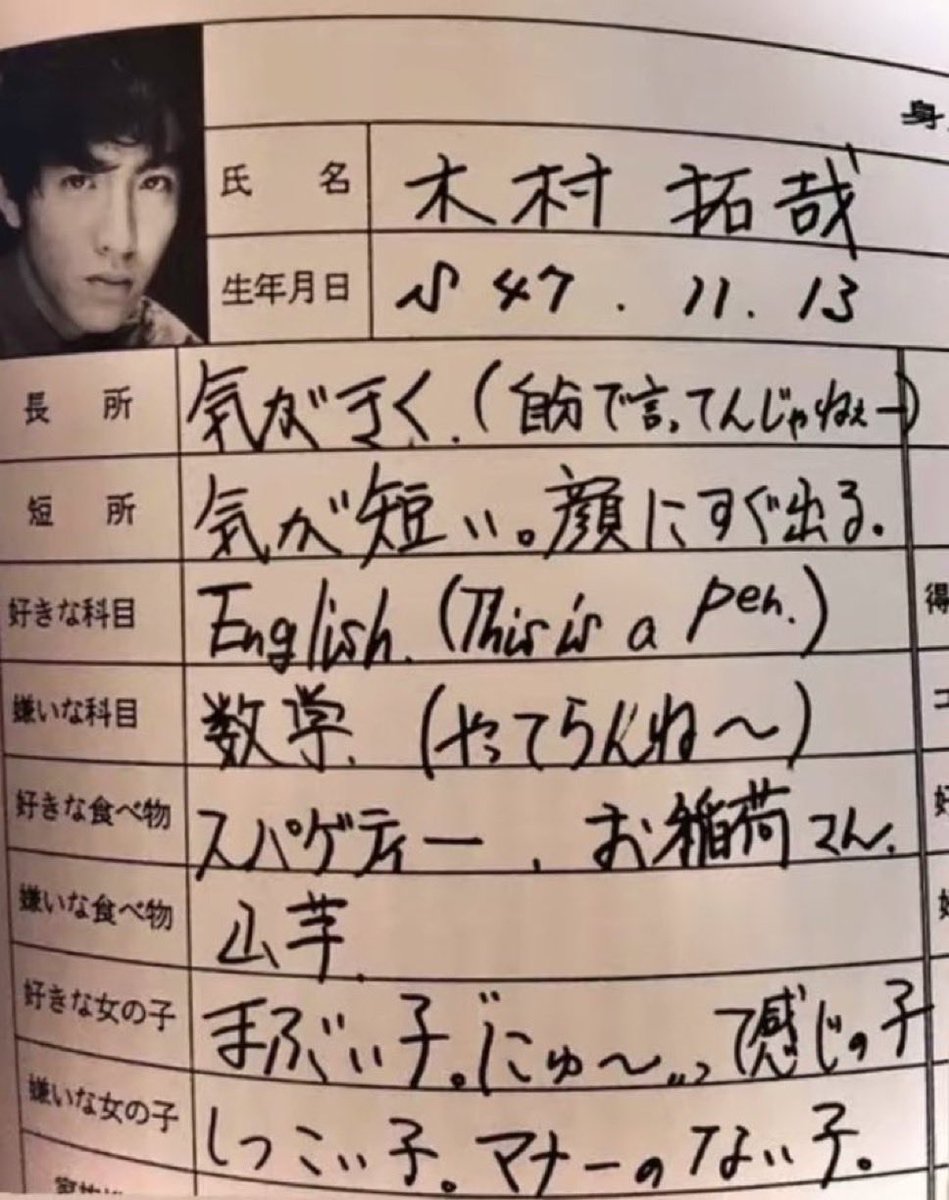 身
氏 名 木村 拓哉
生年月日 S 47. 11. 13
長 所 気がきく.(自分で言ってんじゃねぇー)
短 所 気が短い。顔にすぐ出る。
好きな科目 English. (This is a pen.)
得
嫌いな科目 数学. (やってらんね〜)
コ
好きな食べ物 スパゲティー, お稲荷さん.
好
嫌いな食べ物 山芋.
好きな女の子 まぶい子。"にゅ〜"って感じの子
嫌いな女の子 しつこい子。マナーのない子。